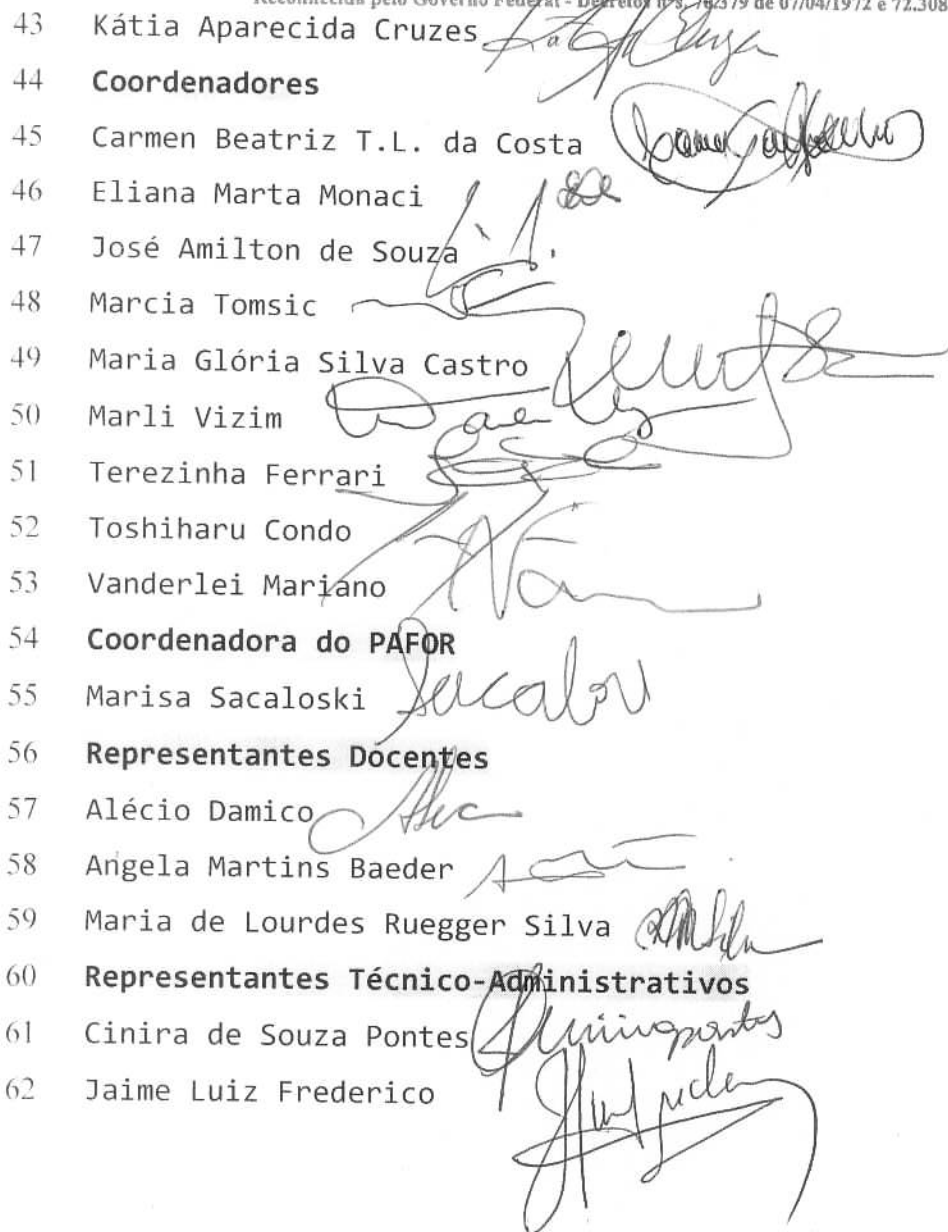 Reconhecida pelo Governo Federal - Decretos nºs. 70.379 de 07/04/1972 e 72.308
43 Kátia Aparecida Cruzes
44 Coordenadores
45 Carmen Beatriz T.L. da Costa
46 Eliana Marta Monaci
47 José Amilton de Souza
48 Marcia Tomsic
49 Maria Glória Silva Castro
50 Marli Vizim
51 Terezinha Ferrari
52 Toshiharu Condo
53 Vanderlei Mariano
54 Coordenadora do PAFOR
55 Marisa Sacaloski
56 Representantes Docentes
57 Alécio Damico
58 Angela Martins Baeder
59 Maria de Lourdes Ruegger Silva
60 Representantes Técnico-Administrativos
61 Cinira de Souza Pontes
62 Jaime Luiz Frederico